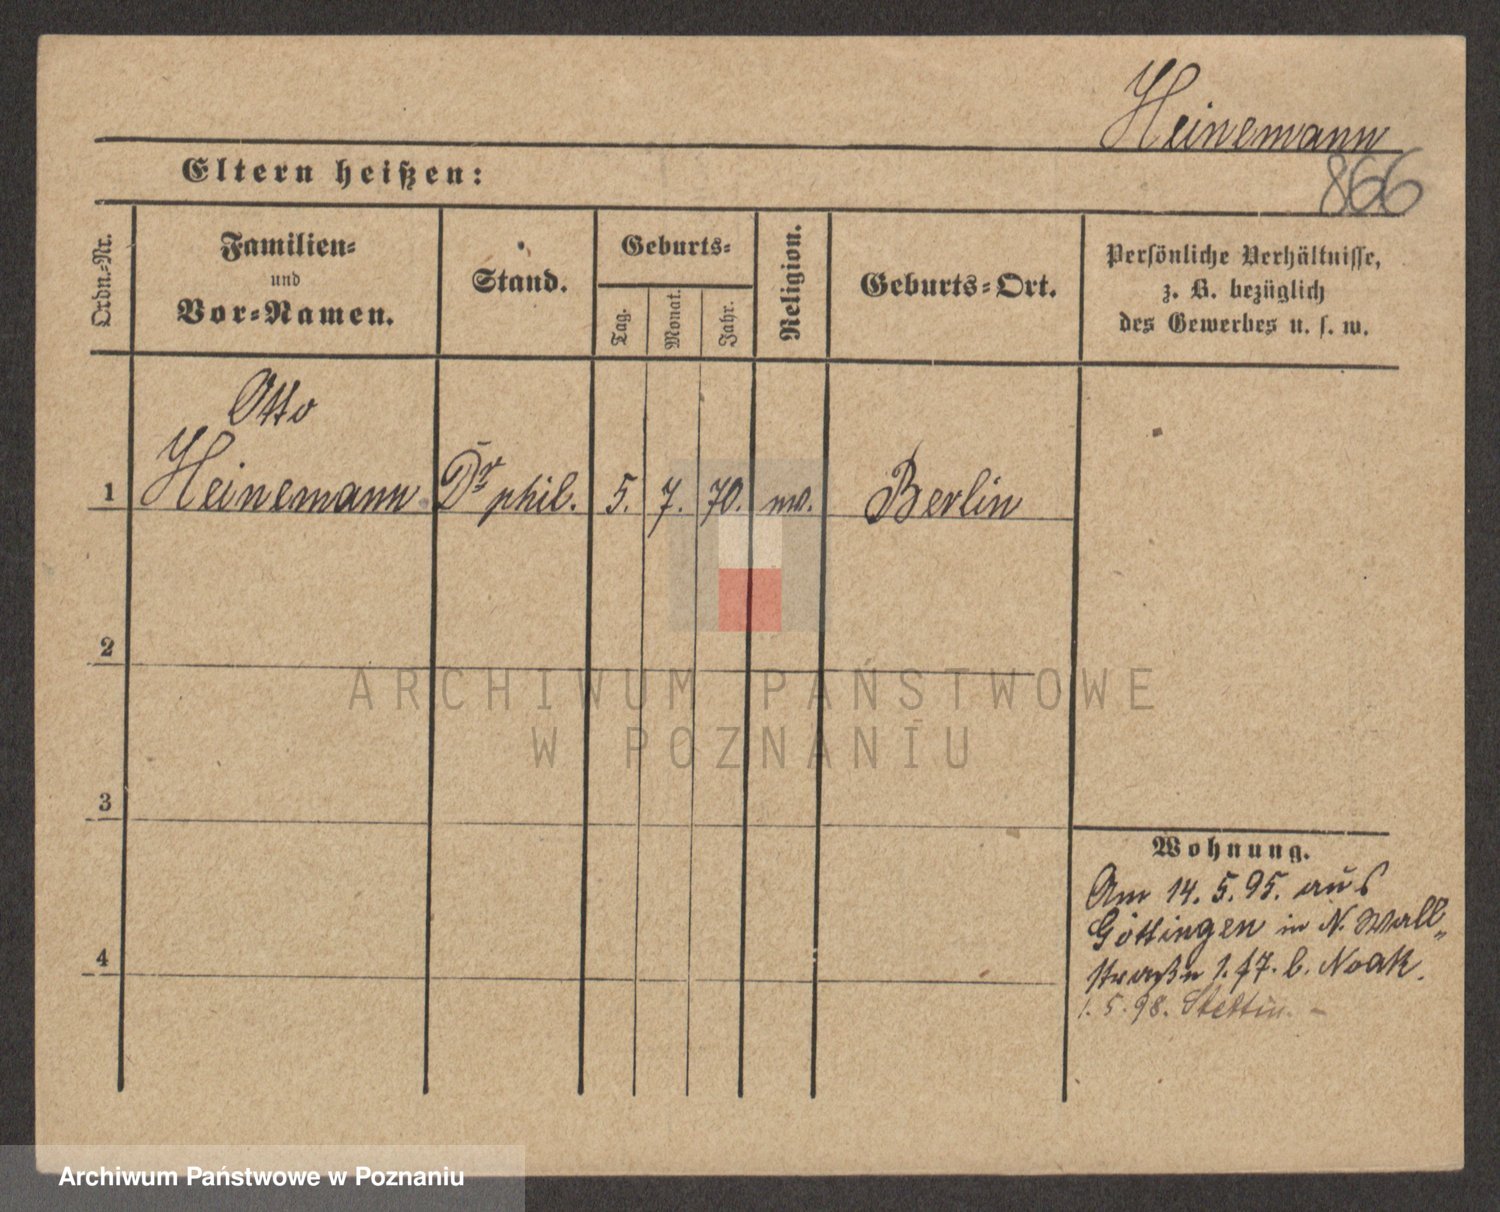 Heinemann
866
Eltern heißen:
Ordn.-Nr.
Familien-
und
Vor-Namen.
Stand.
Geburts-
Tag.
Monat.
Jahr.
Religion.
Geburts-Ort.
Persönliche Verhältnisse,
z. B. bezüglich
des Gewerbes u. s. w.
Otto
1 Heinemann Dr phil. 5. 7. 70. Berlin
2
3
4
Wohnung.
Am 14. 5. 95. aus
Göttingen in N. Wall-
straße 1. b. Noak.
1. 5. 98. Stettin. -
ARCHIWUM PAŃSTWOWE
W POZNANIU
Archiwum Państwowe w Poznaniu